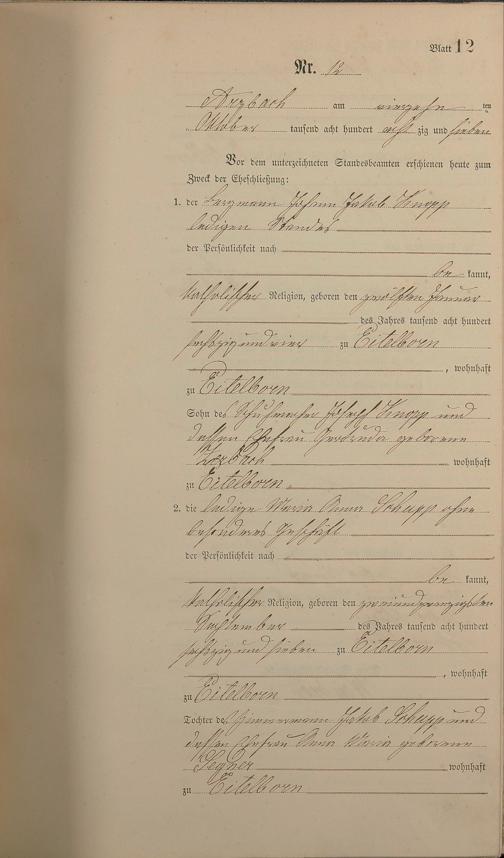 Blatt 12
Nr. 12
Arzbach am vierzehn ten
Oktober tausend acht hundert acht zig und sieben
Vor dem unterzeichneten Standesbeamten erschienen heute zum
Zweck der Eheschließung:
1. der Bergmann Johann Jakob Knopp
ledigen Standes
der Persönlichkeit nach
be kannt,
katholischer Religion, geboren den zwölften Januar
des Jahres tausend acht hundert
sechszig und vier zu Eitelborn
, wohnhaft
zu Eitelborn
Sohn des Schuhmacher Joseph Knopp und
dessen Ehefrau Gertruda geborene
wohnhaft
zu Eitelborn
2. die ledige Maria Anna Schupp ohne
besonderes Geschäft
der Persönlichkeit nach
be kannt,
katholischer Religion, geboren den zweiundzwanzigsten
September des Jahres tausend acht hundert
sechszig und sieben zu Eitelborn
, wohnhaft
zu Eitelborn
Tochter des Zimmermann Jakob Schupp und
dessen Ehefrau Anna Maria geborene
wohnhaft
zu Eitelborn